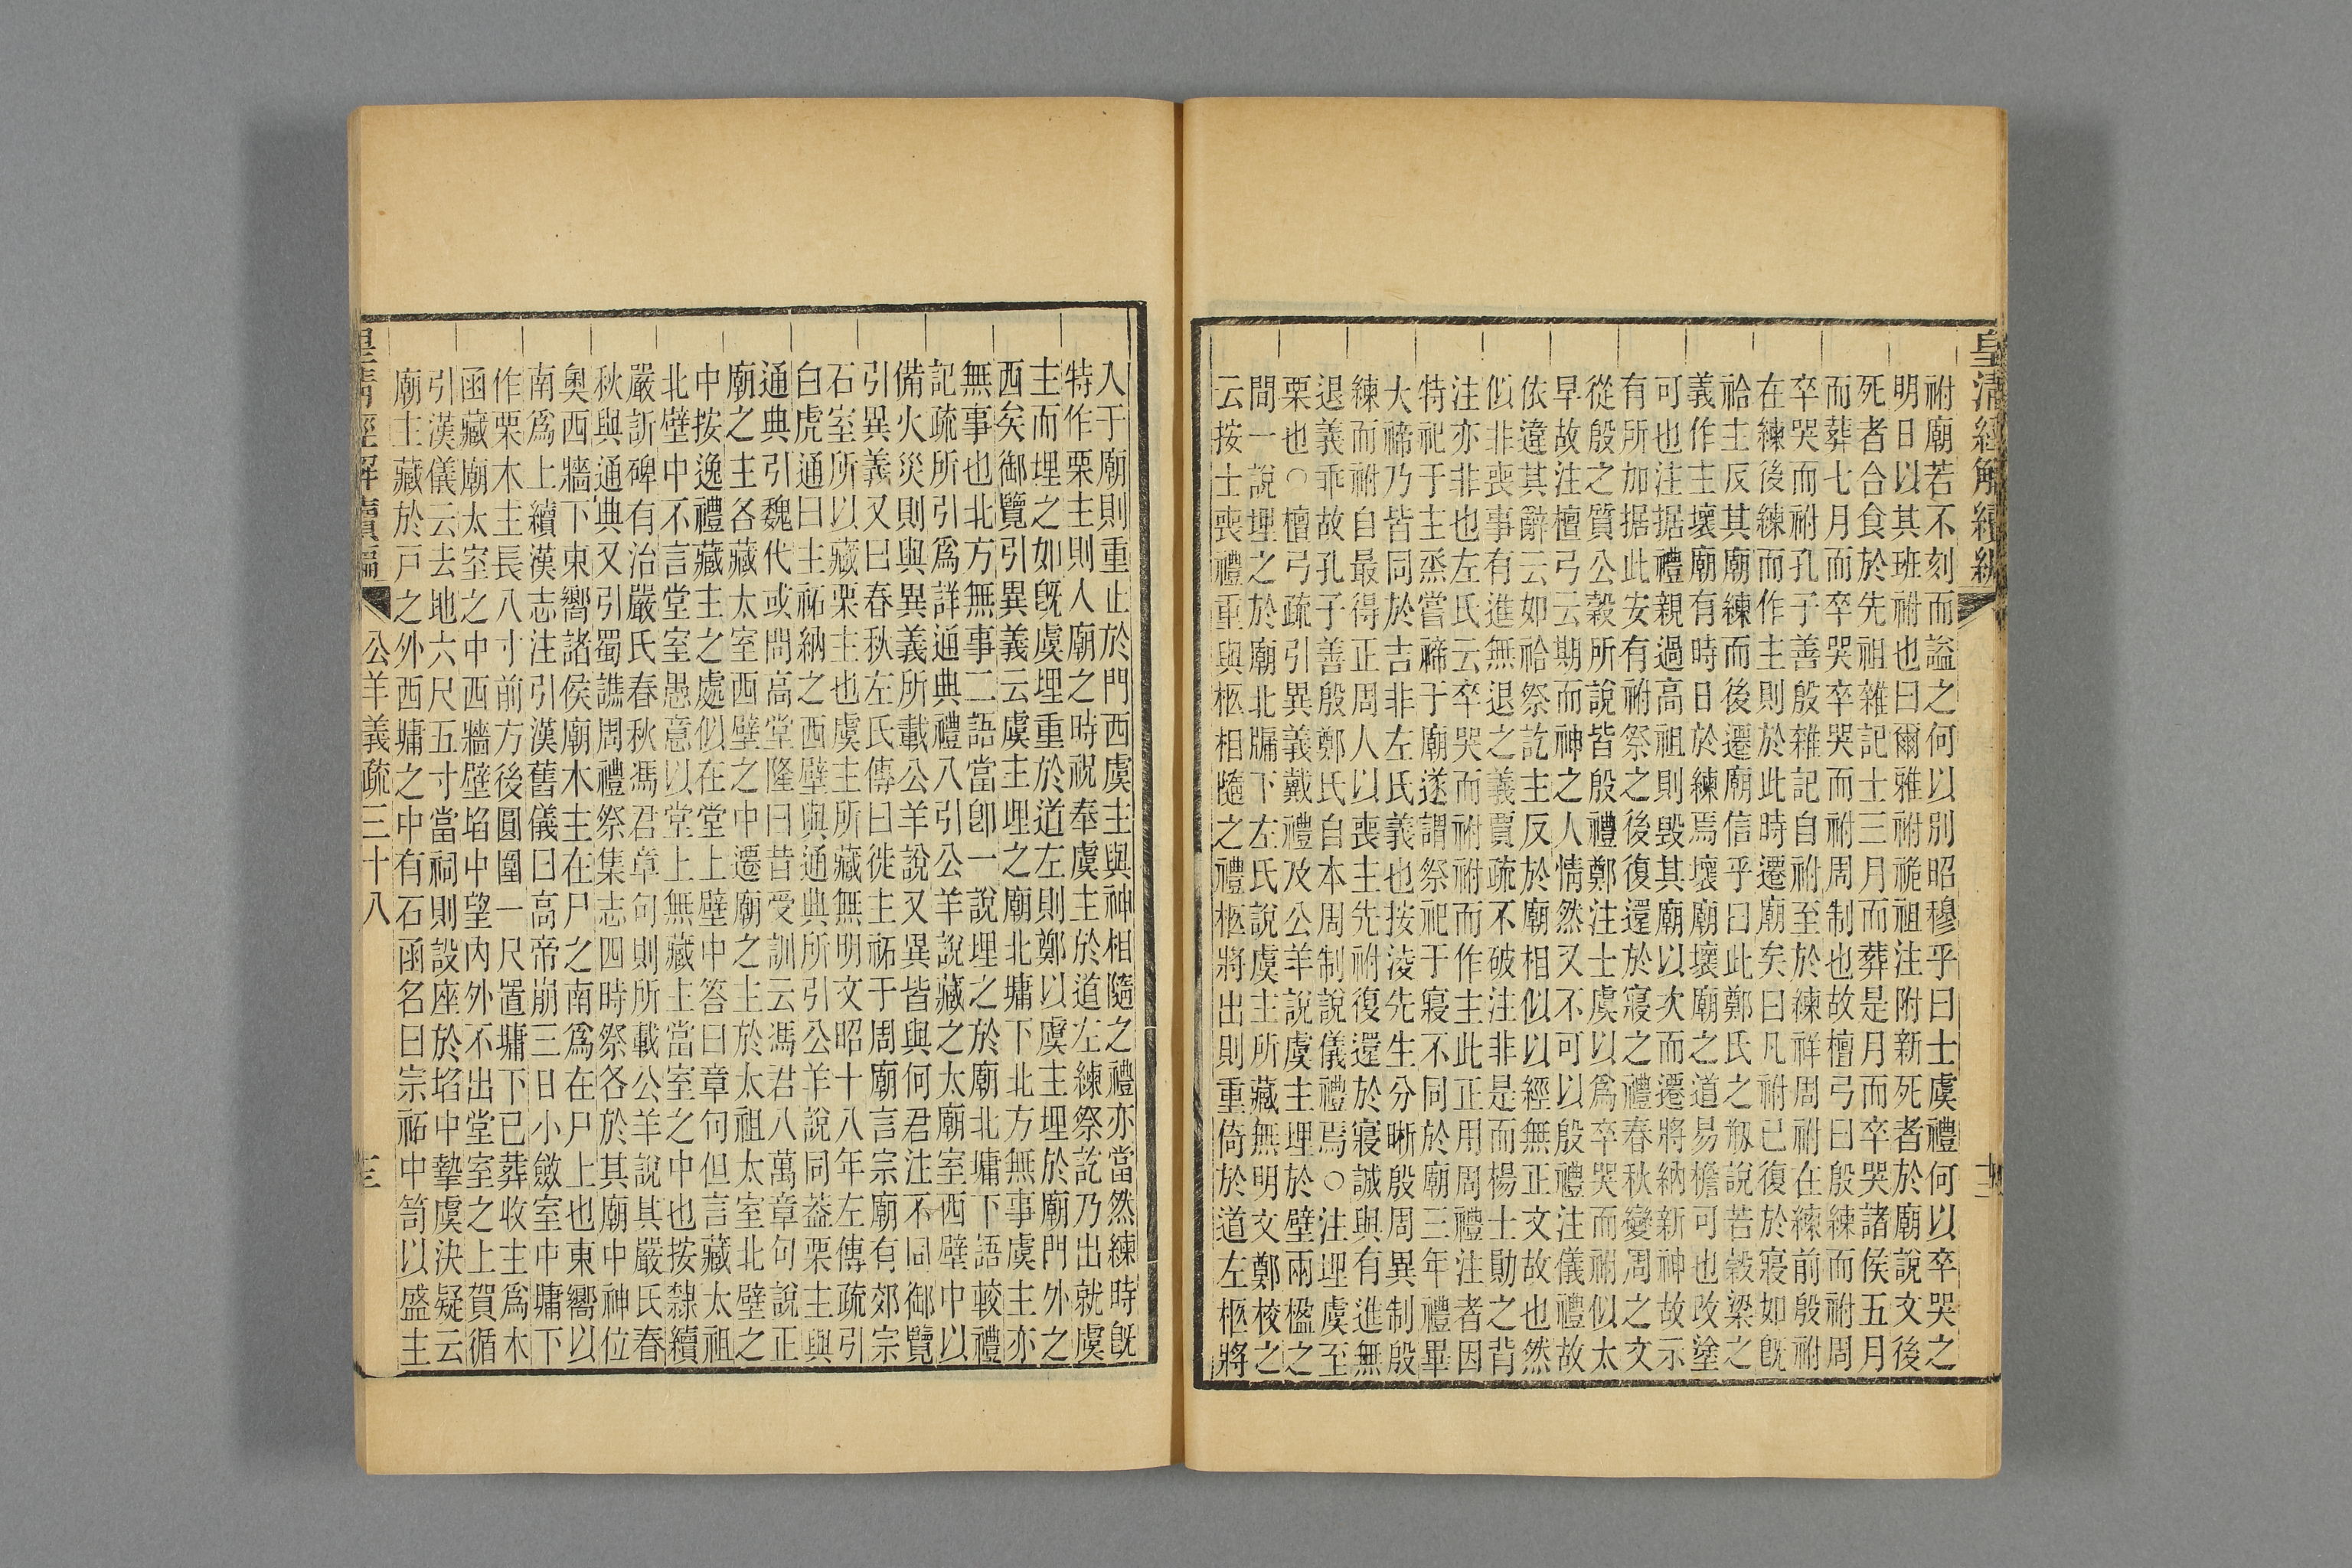 皇清經解續編
祔廟若不刻而謚之何以別昭穆乎曰士虞禮何以卒哭之
明日以其班祔也曰爾雅祔祪祖注附新死者於廟說文後
死者合食於先祖雜記士三月而葬是月而卒哭諸侯五月
而葬七月而卒哭卒哭而祔周制也故檀弓曰殷練而祔周
卒哭而祔孔子善殷雜記自祔至於練祥周祔在練前殷祔
在練後練而作主則於此時遷廟矣曰凡祔已復於寢如旣
祫主反其廟練而後遷廟信乎曰此鄭氏之剏說若穀梁之
義作主壞廟有時日於練焉壞廟壞廟之道易檐可也改塗
可也注据禮親過高祖則毀其廟以次而遷將納新神故示
有所加据此安有祔祭之後復還於寢之禮春秋變周之文
從殷之質公穀所說皆殷禮鄭注士虞以以爲卒哭而祔似太
早故注檀弓云期而神之人情然又不可以殷禮注儀禮故
依違其辭云如祫祭訖主反於廟相似以經無正文故也然
似非喪事有進無退之義賈疏不破注非是而楊士勛之背
注亦非也左氏云卒哭而祔祔而作主此正用周禮注者因
特祀于主烝嘗禘于廟遂謂祭祀于寢不同於廟三年禮畢
大禘乃皆同於吉非左氏義也按淩先生分晰殷周異制殷
練而祔自最得正周人以喪主先祔復還於寢誠與有進無
退義乖故孔子善殷鄭氏自本周制說儀禮焉○注埋虞至
栗也○檀弓疏引異義戴禮及公羊說虞主埋於壁兩楹之
間一說埋之於廟北牖下左氏說虞主所藏無明文鄭梭之
云按士喪禮重與柩相隨之禮柩將出則重倚於道左柩將
入于廟則重止於門西虞主與神相隨之禮亦當然練時旣
特作栗主則人廟之時祝奉虞主於道左練祭訖乃出就虞
主而埋之如旣虞埋重於道左則鄭以虞主埋於廟門外之
西矣御覽引異義云虞主埋之廟北墉下北方無事虞主亦
無事也北方無事二語當卽一說埋之於廟北墉下語較禮
記疏所引爲詳通典禮八引公羊說藏之太廟室西壁中以
備火災則與異義所載公羊說又異皆與何君注不同御覽
引異義又曰春秋左氏傳曰徙主祏于周廟言宗廟有郊宗
石室所以藏栗主也虞主所藏無明文昭十八年左傳疏引
白虎通曰主祏納之西壁與通典所引公羊說同葢栗主與
通典引魏代或問高堂隆曰昔受訓云馮君八萬章句說正
廟之主各藏太室西壁之中遷廟之主於太祖太室北壁之
中按逸禮藏主之處似在堂上壁中答曰章句但言藏太祖
北壁中不言堂室愚意以堂上無藏主當室之中也按隸續
嚴訢碑有治嚴氏春秋馮君章句則所載公羊說其嚴氏春
秋與通典又引蜀譙周禮祭集志四時祭各於其廟中神位
奧西牆下東嚮諸侯廟木主在尸之南爲在尸上也東嚮以
南爲上續漢志注引漢舊儀曰高帝崩三日小斂室中墉下
作栗木主長八寸前方後圓圍一尺置墉下已葬收主爲木
函藏廟太室之中西牆壁埳中望內外不出堂室之上賀循
引漢儀云去地六尺五寸當祠則設座於埳中摯虞決疑云
廟主藏於戸之外西墉之中有石函名曰宗祏中笥以盛主
皇清經解續編 公羊義疏三十八